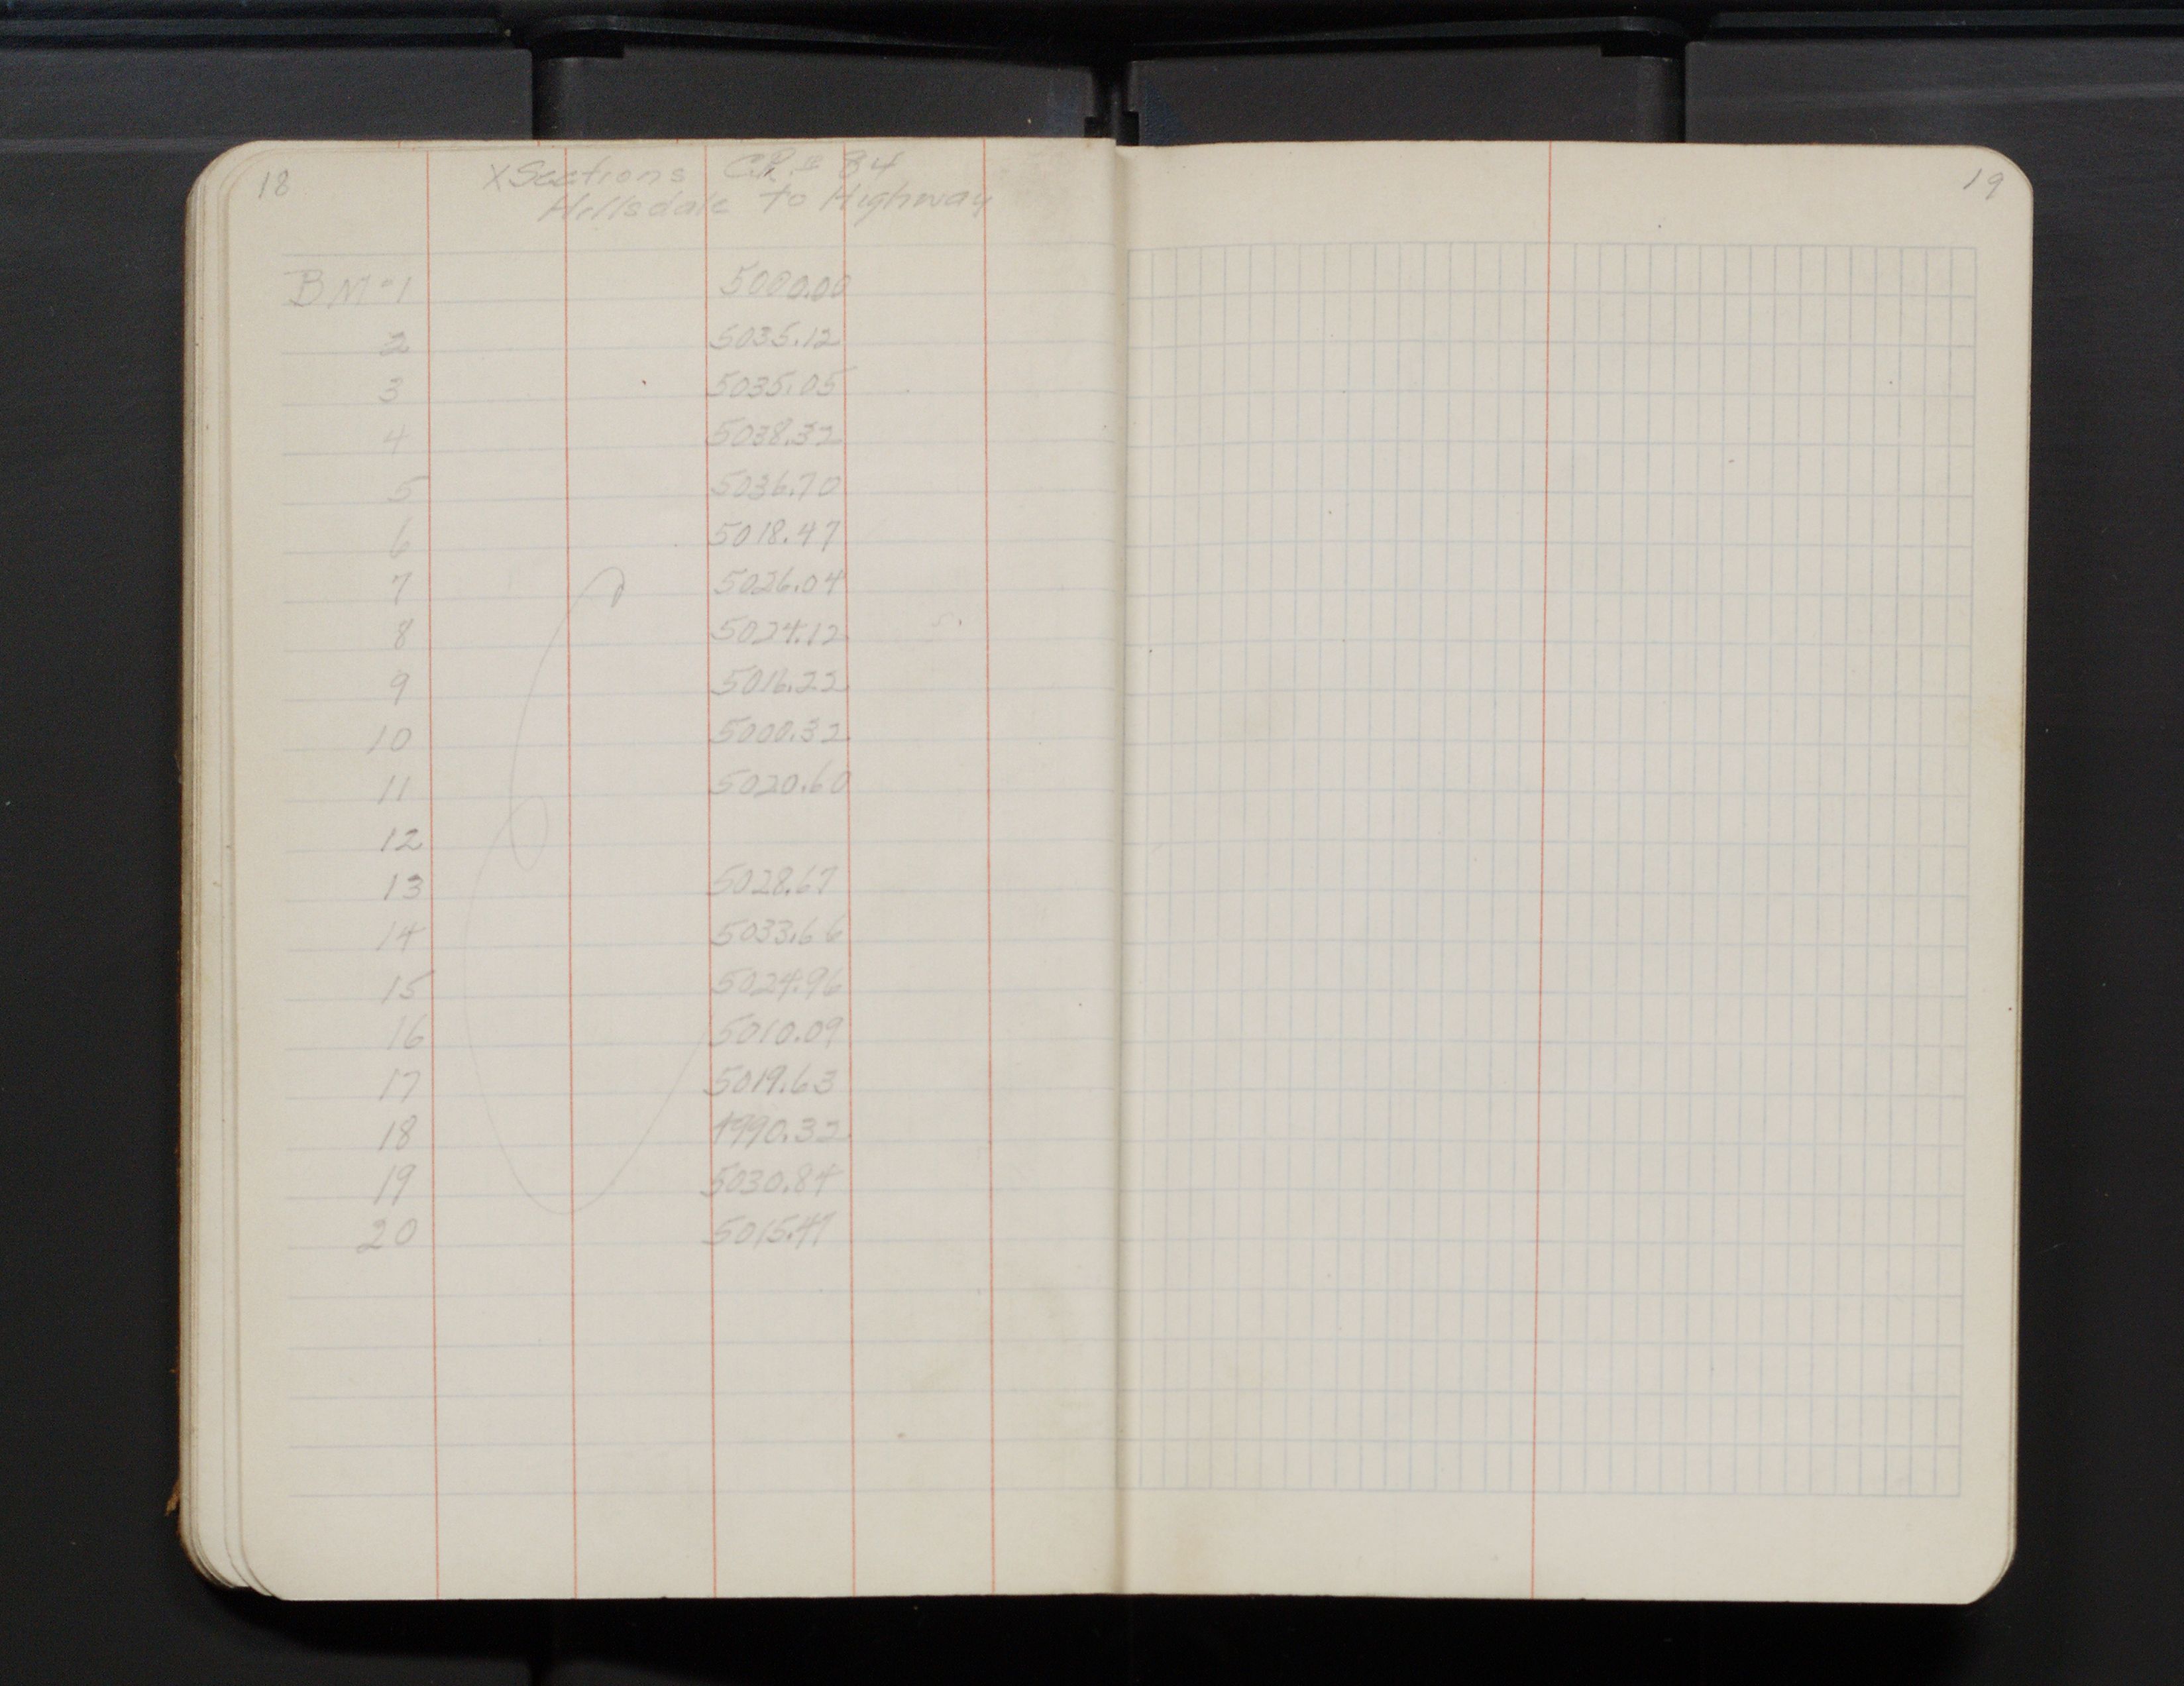 18
XSections C.R. # 84
Hillsdale to Highway
BM #1 5000.00
2 5035.12
3 5035.05
4 5038.32
5 5036.70
6 5018.47
7 5026.04
8 5024.12
9 5016.22
10 5000.32
11 5020.60
12
13 5028.67
14 5033.66
15 5024.96
16 5010.09
17 5019.63
18 4990.32
19 5030.84
20 5015.47
19